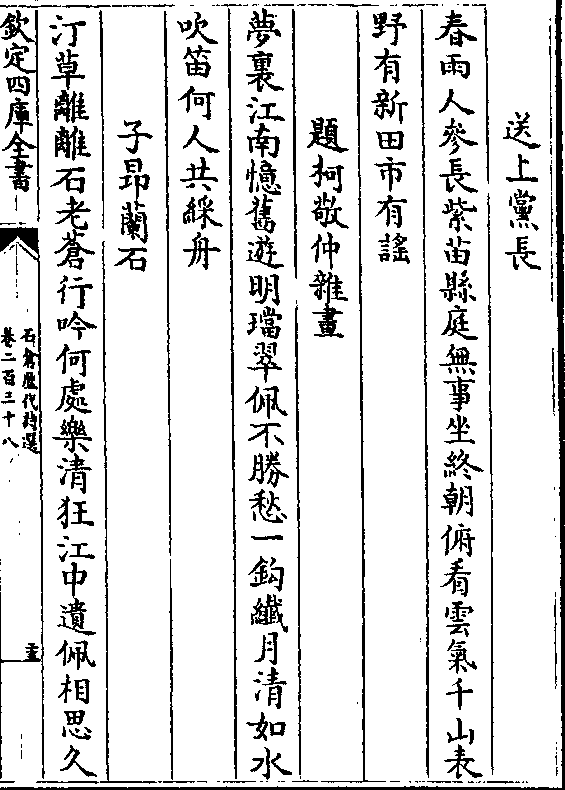 送上黨長
春雨人參長紫苗縣庭無事坐終朝俯看雲氣千山表
野有新田市有謠
題柯敬仲雜畫
夢裏江南憶舊遊明璫翠佩不勝愁一鈎纖月清如水
吹笛何人共綵舟
子昻蘭石
汀草離離石老蒼行吟何處樂清狂江中遺佩相思久
欽定四庫全書
石倉歷代詩選
卷二百三十八